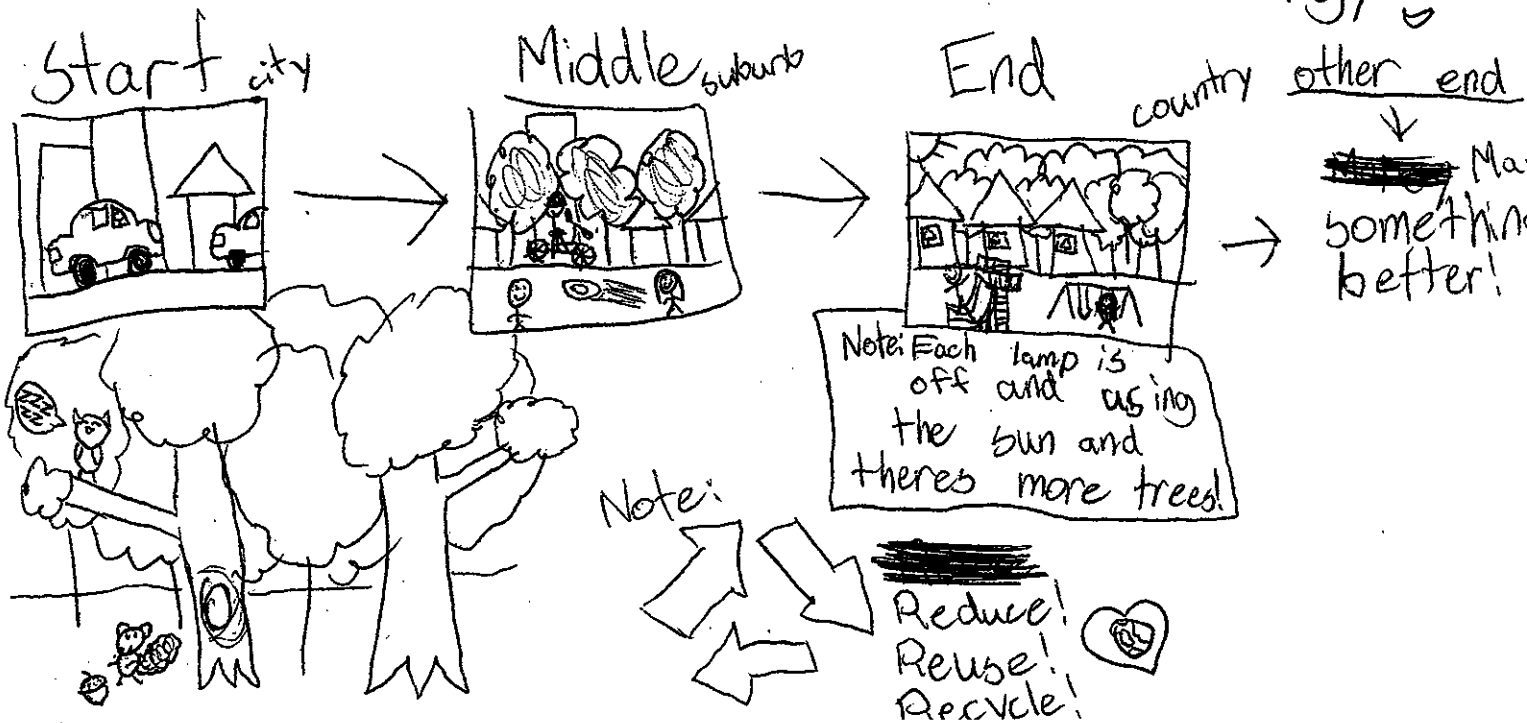 Start city
Middle suburb
End country
other end
something
better!
Note: Each lamp is
off and using
the sun and
theres more trees!
Note:
Reduce!
Reuse!
Recycle!